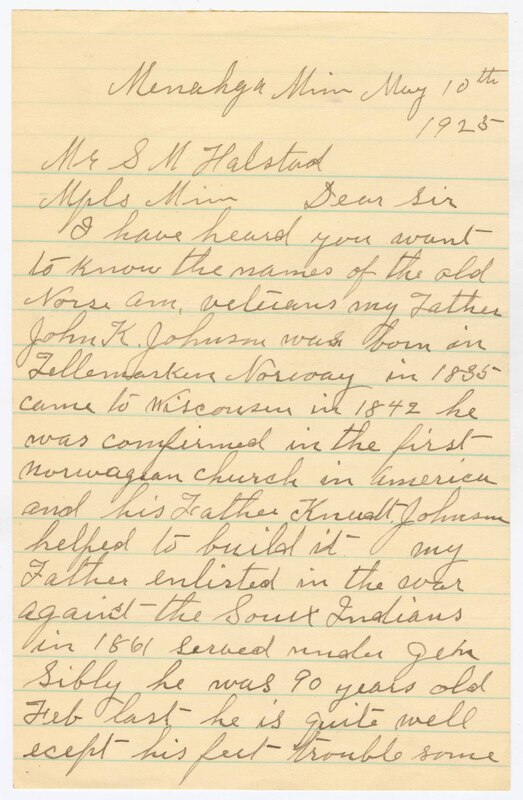 Menahga Minn May 10th
1925
Mr S M Halstad
Mpls Minn Dear Sir
I have heard you want
to know the names of the old
Norse Am. veterans my Father
John K. Johnson was born in
Tellemarken Norway in 1835
came to Wisconsen in 1842 he
was confirmed in the first
norwagian church in America
and his Father Knudt Johnson
helped to build it my
Father enlisted in the war
against the Soux Indians
in 1861 served under gen
Sibly he was 90 years old
Feb last he is quite well
ecept his feet trouble some